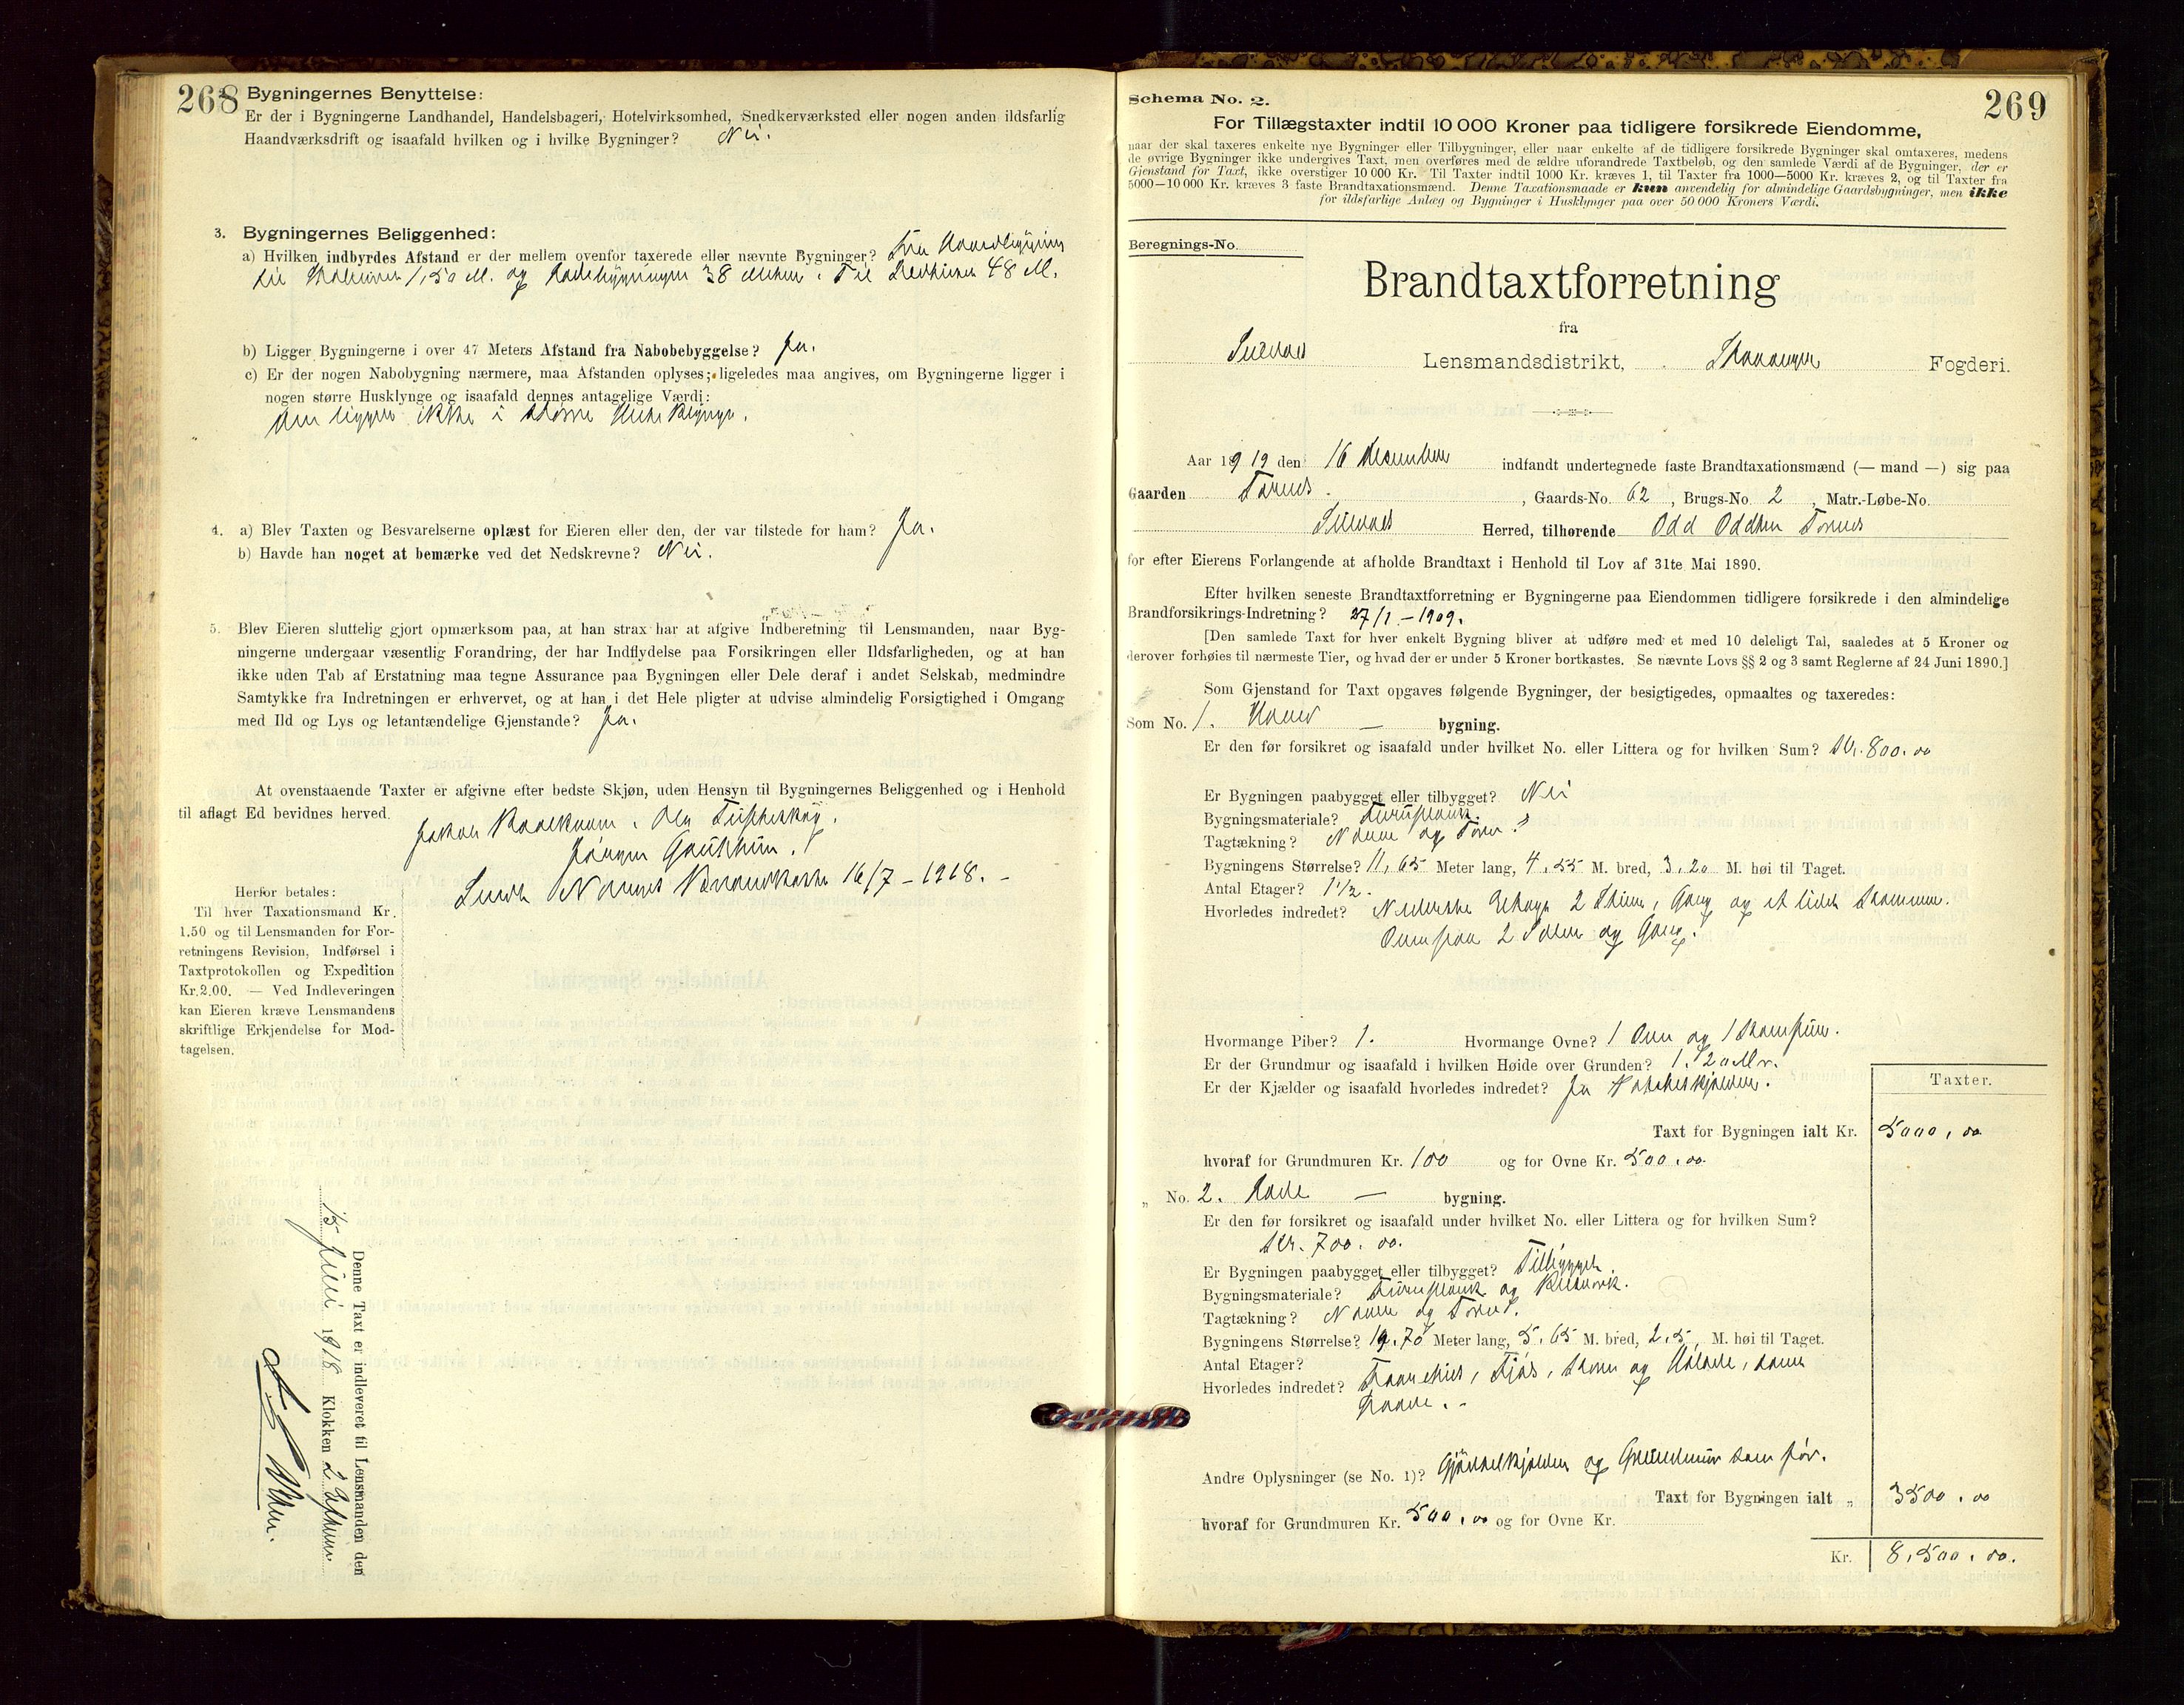 268
Bygningernes Benyttelse:
Er der i Bygningerne Landhandel, Handelsbageri, Hotelvirksomhed, Snedkerværksted eller nogen anden ildsfarlig
Haandværksdrift og isaafald hvilken og i hvilke Bygninger? Nei.
3. Bygningernes Beliggenhed:
a) Hvilken indbyrdes Afstand er der mellem ovenfor taxerede eller nævnte Bygninger? Fra
til 1,50 M. og Ladebygningen 38 Meter. Til 48 M.
b) Ligger Bygningerne i over 47 Meters Afstand fra Nabobebyggelse? Ja.
c) Er der nogen Nabobygning nærmere, maa Afstanden oplyses; ligeledes maa angives, om Bygningerne ligger i
nogen større Husklynge og isaafald dennes antagelige Værdi:
ligger ikke i større
4. a) Blev Taxten og Besvarelserne oplæst for Eieren eller den, der var tilstede for ham? Ja.
b) Havde han noget at bemærke ved det Nedskrevne? Nei.
5. Blev Eieren sluttelig gjort opmærksom paa, at han strax har at afgive Indberetning til Lensmanden, naar Byg-
ningerne undergaar væsentlig Forandring, der har Indflydelse paa Forsikringen eller Ildsfarligheden, og at han
ikke uden Tab af Erstatning maa tegne Assurance paa Bygningen eller Dele deraf i andet Selskab, medmindre
Samtykke fra Indretningen er erhvervet, og at han i det Hele pligter at udvise almindelig Forsigtighed i Omgang
med Ild og Lys og letantændelige Gjenstande? Ja.
At ovenstaaende Taxter er afgivne efter bedste Skjøn, uden Hensyn til Bygningernes Beliggenhed og i Henhold
til aflagt Ed bevidnes herved.
Jakob
Sendt Norges Brandkasse 16/7 – 1918. –
Herfor betales:
Til hver Taxationsmand Kr.
1.50 og til Lensmanden for For-
retningens Revision, Indførsel i
Taxtprotokollen og Expedition
Kr. 2.00. — Ved Indleveringen
kan Eieren kræve Lensmandens
skriftlige Erkjendelse for Mod-
tagelsen.
Denne Taxt er indleveret til Lensmanden den
15 Juli 1918 Klokken 2
269
Schema No. 2.
For Tillægstaxter indtil 10 000 Kroner paa tidligere forsikrede Eiendomme,
naar der skal taxeres enkelte nye Bygninger eller Tilbygninger, eller naar enkelte af de tidligere forsikrede Bygninger skal omtaxeres, medens
de øvrige Bygninger ikke undergives Taxt, men overføres med de ældre uforandrede Taxtbeløb, og den samlede Værdi af de Bygninger, der er
Gjenstand for Taxt, ikke overstiger 10 000 Kr. Til Taxter indtil 1000 Kr. kræves 1, til Taxter fra 1000—5000 Kr. kræves 2, og til Taxter fra
5000—10 000 Kr. kræves 3 faste Brandtaxationsmænd. Denne Taxationsmaade er kun anvendelig for almindelige Gaardsbygninger, men ikke
for ildsfarlige Anlæg og Bygninger i Husklynger paa over 50 000 Kroners Værdi.
Beregnings-No.
Brandtaxtforretning
fra
Lensmandsdistrikt, Stavanger Fogderi.
Aar 1919 den 16 December indfandt undertegnede faste Brandtaxationsmænd (— mand —) sig paa
Gaarden , Gaards-No. 62, Brugs-No. 2, Matr.-Løbe-No.
Herred, tilhørende Odd Oddsen
for efter Eierens Forlangende at afholde Brandtaxt i Henhold til Lov af 31te Mai 1890.
Efter hvilken seneste Brandtaxtforretning er Bygningerne paa Eiendommen tidligere forsikrede i den almindelige
Brandforsikrings-Indretning? 27/1 – 1909.
[Den samlede Taxt for hver enkelt Bygning bliver at udføre med et med 10 deleligt Tal, saaledes at 5 Kroner og
derover forhøies til nærmeste Tier, og hvad der er under 5 Kroner bortkastes. Se nævnte Lovs §§ 2 og 3 samt Reglerne af 24 Juni 1890.]
Som Gjenstand for Taxt opgaves følgende Bygninger, der besigtigedes, opmaaltes og taxeredes:
Som No. 1. — bygning.
Er den før forsikret og isaafald under hvilket No. eller Littera og for hvilken Sum? Kr. 800.00
Er Bygningen paabygget eller tilbygget? Nei
Bygningsmateriale?
Tagtækning? og
Bygningens Størrelse? 11,65 Meter lang, 4,55 M. bred, 3,20 M. høi til Taget.
Antal Etager? 1½.
Hvorledes indredet? Nederste Etage 2 Stuer, Gang og et lidet Kammer.
Ovenpaa 2 og Gang.
Hvormange Piber? 1. Hvormange Ovne? 1 Ovn og 1
Er der Grundmur og isaafald i hvilken Høide over Grunden? 1.20
Er der Kjælder og isaafald hvorledes indredet? Ja
Taxter.
Taxt for Bygningen ialt Kr. 5000,00
hvoraf for Grundmuren Kr. 100 og for Ovne Kr. 500,00.
„ No. 2. Lade — bygning.
Er den før forsikret og isaafald under hvilket No. eller Littera og for hvilken Sum?
Kr. 700.00.
Er Bygningen paabygget eller tilbygget? Tilbygget.
Bygningsmateriale? og
Tagtækning? og
Bygningens Størrelse? 19.70 Meter lang, 5,65 M. bred, 2,5 M. høi til Taget.
Antal Etager?
Hvorledes indredet?
Andre Oplysninger (se No. 1)? og Grundmur som før.
Taxt for Bygningen ialt „ 3500.00
hvoraf for Grundmuren Kr. 500,00 og for Ovne Kr.
Kr. 8,500.00.